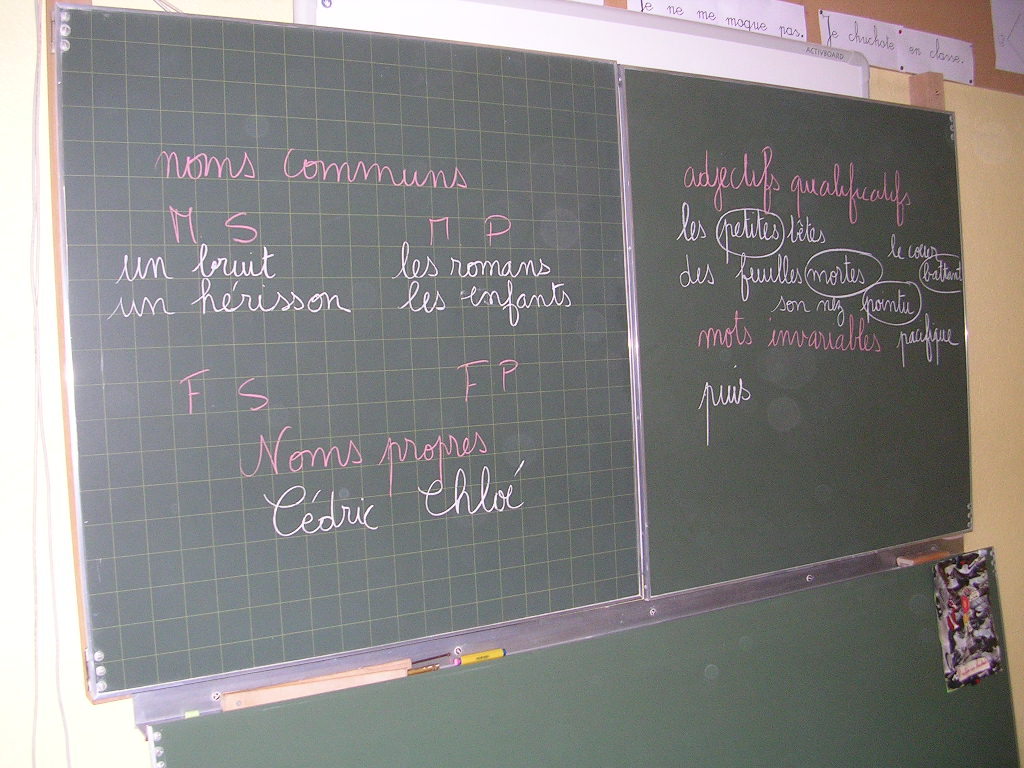 Je ne me moque pas.
Je chuchote en classe.
ACTIVBOARD
noms communs
M S
M P
un bruit
les romans
un hérisson
les enfants
F S
F P
Noms propres
Cédric Chloé
adjectifs qualificatifs
les petites bêtes
le coeur battant
des feuilles mortes
son nez pointu
mots invariables
pacifique
puis